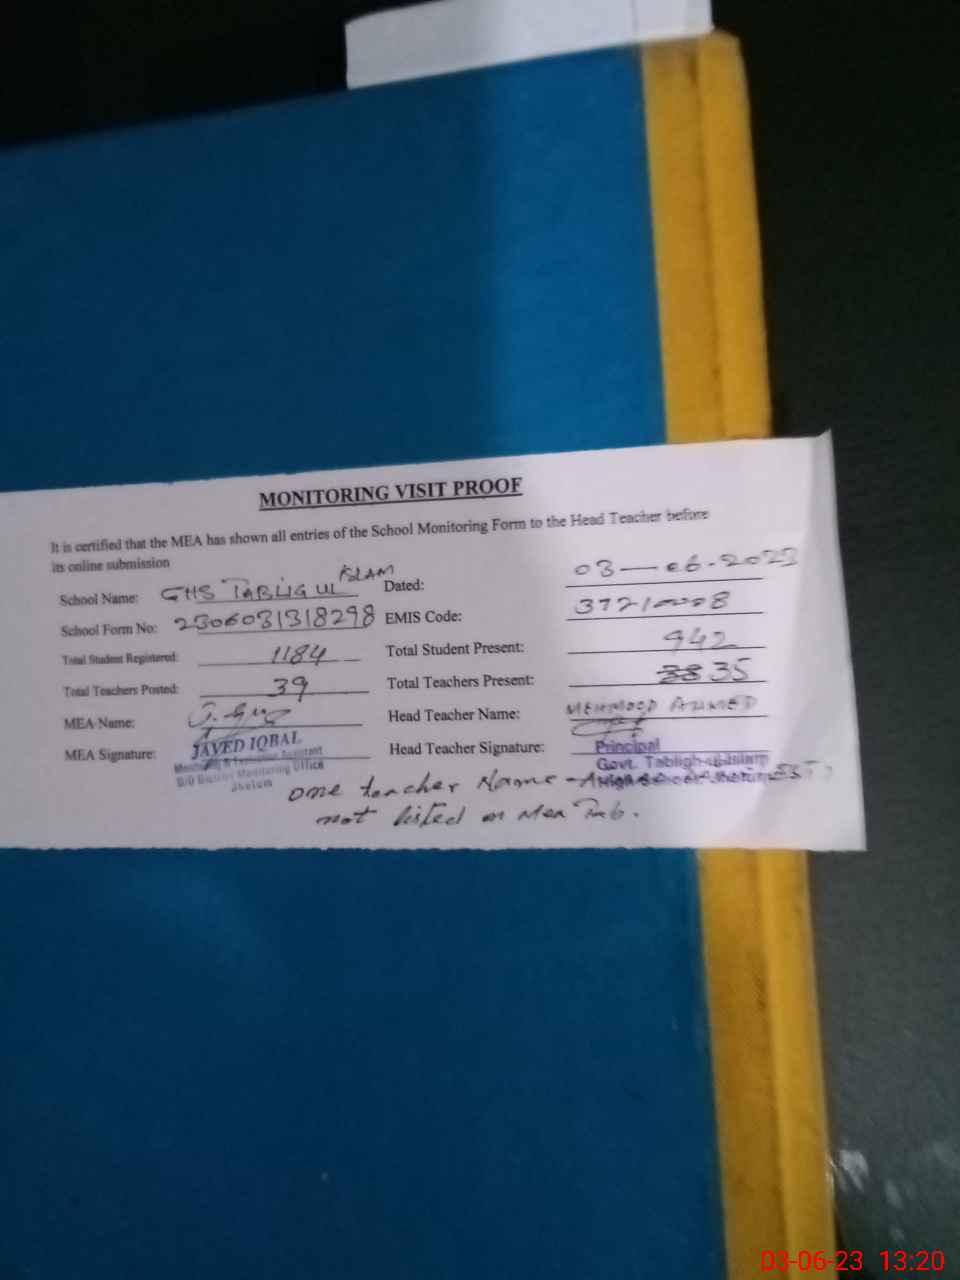 MONITORING VISIT PROOF
It is certified that the MEA has shown all entries of the School Monitoring Form to the Head Teacher before
its online submission
School Name: GHS TABLIG UL ISLAM Dated: 03-06-2023
School Form No: 2306031318298 EMIS Code: 37210008
Total Student Registered: 1184 Total Student Present: 942
Total Teachers Posted: 39 Total Teachers Present: 38 35
MEA Name: Head Teacher Name: MEHMOOD AHMED
MEA Signature: Head Teacher Signature:
JAVED IQBAL
Monitoring & Evaluation Assistant
O/O District Monitoring Office
Jhelum
Principal
Govt. Tabligh-ul-Islam
High School Jhelum
one teacher Name
not listed on Mea Tab.
03-06-23 13:20